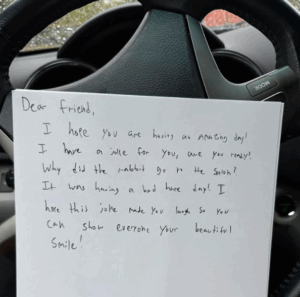 MODE
Dear friend,
I hope you are having an amazing day!
I have a joke for you, are you ready?
Why did the rabbit go to the salon?
It was having a bad hare day! I
hope this joke made you laugh so you
can show everyone your beautiful
smile!